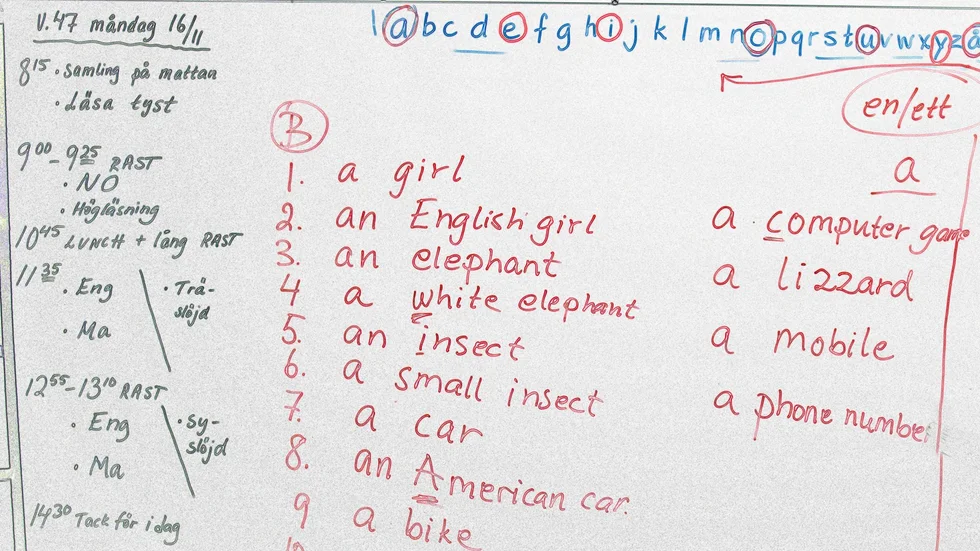 V.47 måndag 16/11
8 15 • Samling på mattan
• Läsa tyst
9 00 - 9 25 RAST
• NO
• Högläsning
10 45 LUNCH + lång RAST
11 35 • Eng
• Ma
• Trä-
slöjd
12 55 - 13 10 RAST
• Eng
• Ma
• Sy-
slöjd
14 30 Tack för idag
a b c d e f g h i j k l m n o p q r s t u v w x y z å
B
1. a girl
2. an English girl
3. an elephant
4 a white elephant
5. an insect
6. a small insect
7. a car
8. an American car.
9 a bike
10
en/ett
a
a computer game
a lizzard
a mobile
a phone number